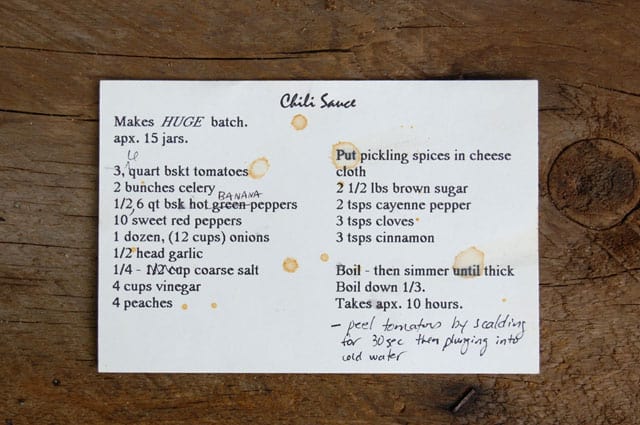 Chili Sauce
Makes HUGE batch.
apx. 15 jars.
6
3, quart bskt tomatoes
2 bunches celery
BANANA
1/2, 6 qt bsk hot green peppers
10 sweet red peppers
1 dozen, (12 cups) onions
1/2 head garlic
1/4 - 1/2 cup coarse salt
4 cups vinegar
4 peaches
Put pickling spices in cheese
cloth
2 1/2 lbs brown sugar
2 tsps cayenne pepper
3 tsps cloves
3 tsps cinnamon
Boil - then simmer until thick
Boil down 1/3.
Takes apx. 10 hours.
- peel tomatoes by scalding
for 30 sec then plunging into
cold water